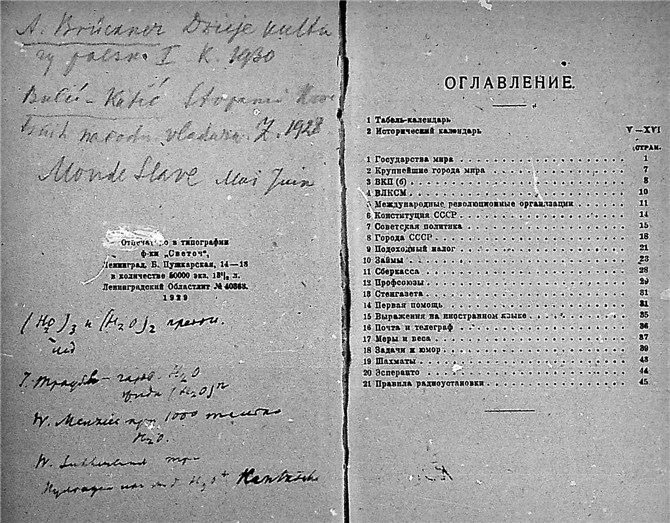 A. Brückner Dzieje kultu
ry polsk. I K. 1930
Bulić-Katić Stopami
narodu. vladara. Z. 1928
Monde Slave Mai Juin
Отпечатано в типографии
ф-ки „Светоч",
Ленинград, Б. Пушкарская, 14—18
в количестве 50000 экз. л.
Ленинградский Областлит № 40863.
1929
(H₂O)₃ и (H₂O)₂
H₂O
(H₂O)ⁿ
W. Menzies при 1000
H₂O.
W. Sutherland
H₃O⁺ Hantzsche
ОГЛАВЛЕНИЕ.
1 Табель-календарь
2 Исторический календарь V—XVI
СТРАН.
1 Государства мира 1
2 Крупнейшие города мира 7
3 ВКП (б) 8
4 ВЛКСМ 10
5 Международные революционные организации 11
6 Конституция СССР 14
7 Советская политика 15
8 Города СССР 18
9 Подоходный налог 21
10 Займы 23
11 Сберкасса 28
12 Профсоюзы 29
13 Стенгазета 31
14 Первая помощь 31
15 Выражения на иностранном языке 35
16 Почта и телеграф 36
17 Меры и веса 37
18 Задачи и юмор 39
19 Шахматы 43
20 Эсперанто 44
21 Правила радиоустановки 45